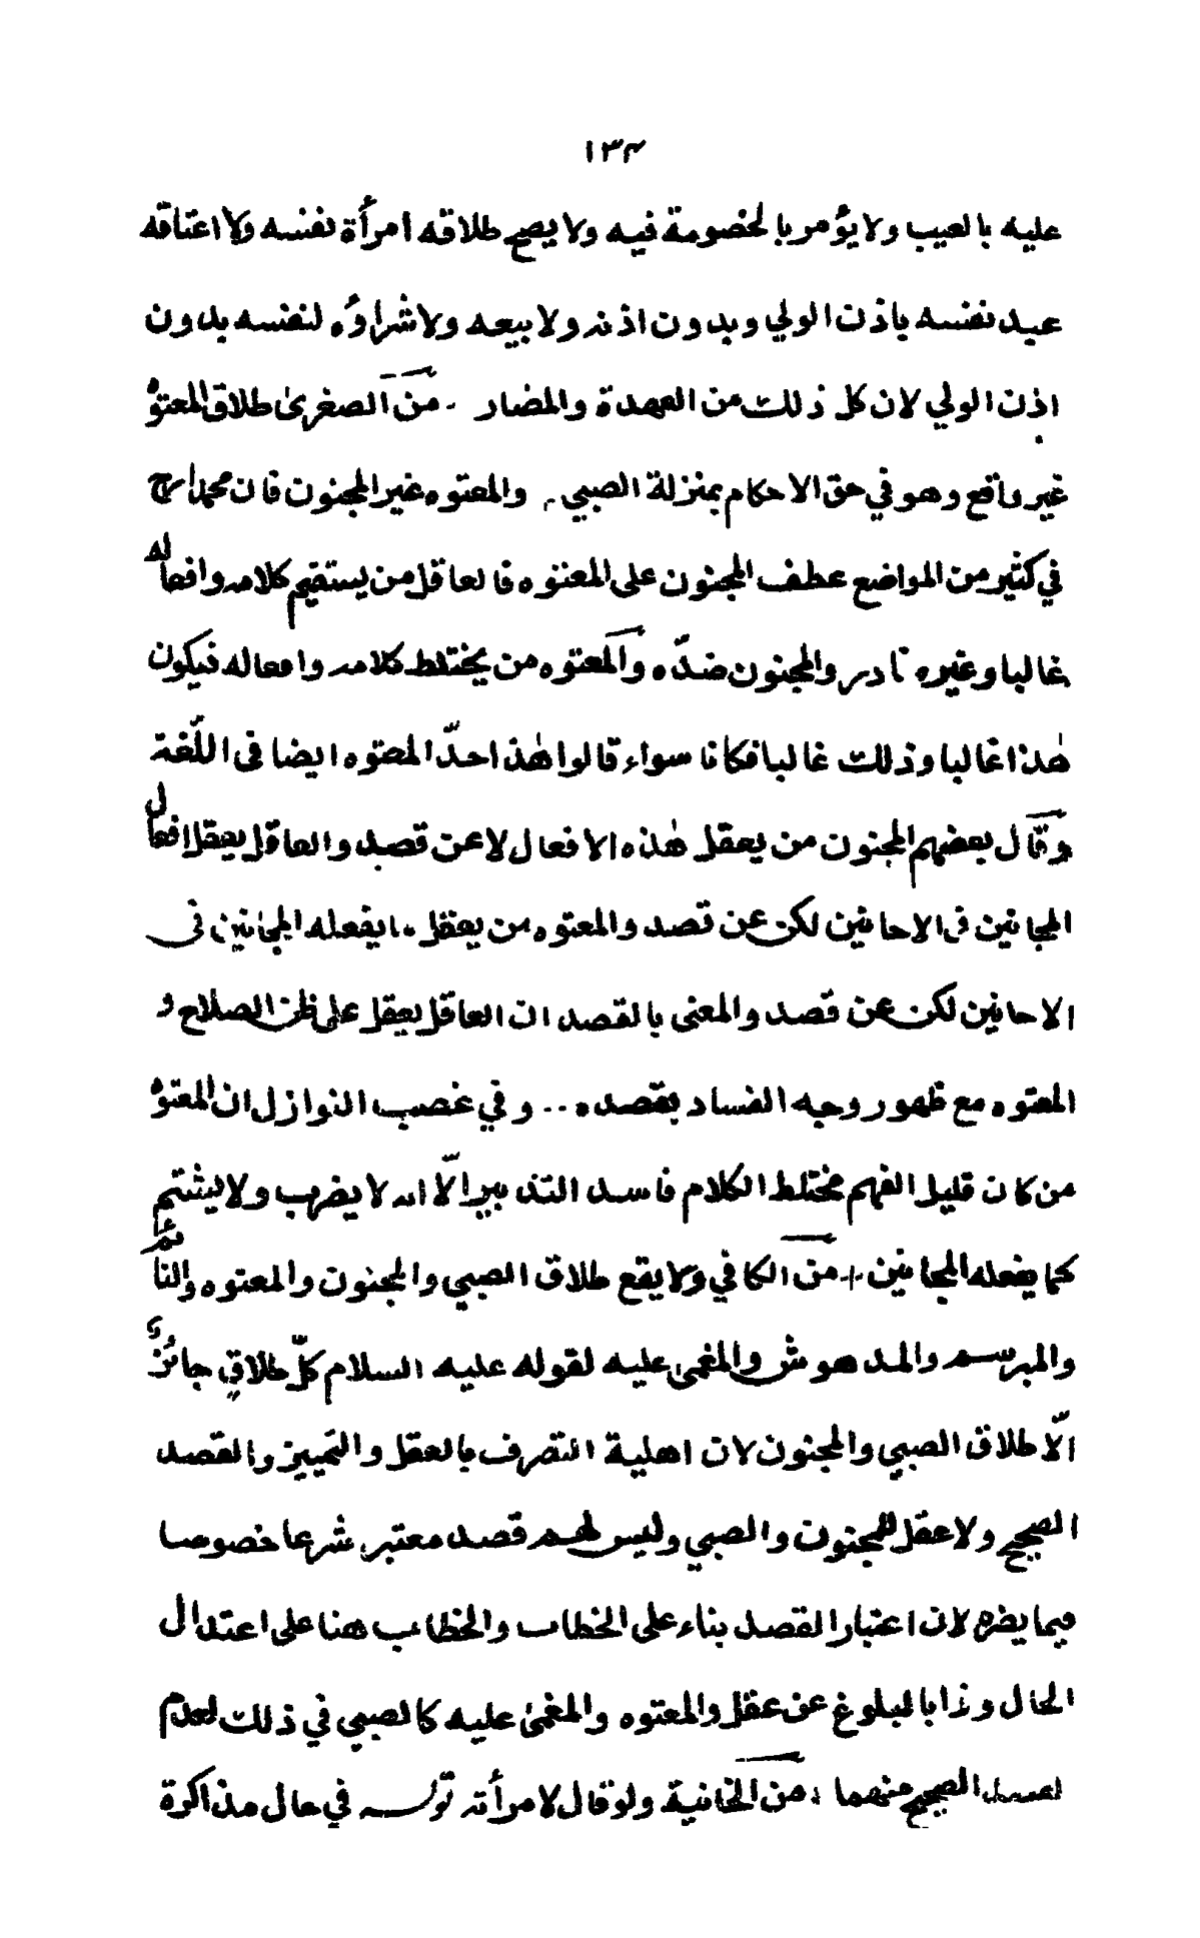 ١٣٤
عليه بالعيب ولا يؤمر بالخصومة فيه ولا يصح طلاقه امرأة نفسه ولا اعتاقه
عبد نفسه باذن الولي وبدون اذنه ولا بيعه ولا شراؤه لنفسه بدون
اذن الولي لان كل ذلك من العهدة والمضار . من الصغرى طلاق المعتوه
غير واقع وهو في حق الاحكام بمنزلة الصبي . والمعتوه غير المجنون فان محمدا رح
في كثير من المواضع عطف المجنون على المعتوه فالعاقل من يستقيم كلامه وافعاله
غالبا وغيره نادر والمجنون ضدّه والمعتوه من يختلط كلامه وافعاله فيكون
هٰذا غالبا وذلك غالبا فكانا سواء قالوا هٰذا حدّ المعتوه ايضا فى اللّغة
وقال بعضهم المجنون من يعقل هٰذه الافعال لا عن قصد والعاقل يعقل افعال
المجانين فى الاحانين لكن عن قصد والمعتوه من يعقل ما يفعله المجانين فى
الاحانين لكن عن قصد والمعنى بالقصد ان العاقل يعقل على ظن الصلاح و
المعتوه مع ظهور وجه الفساد بقصده .. وفي غصب النوازل ان المعتوه
من كان قليل الفهم مختلط الكلام فاسد التدبير الّا انه لا يضرب ولا يشتم
كما يفعله المجانين . من الكافي ولا يقع طلاق الصبي والمجنون والمعتوه والنائم
والمبرسم والمدهوش والمغمى عليه لقوله عليه السلام كلّ طلاقٍ جائزٌ
الّا طلاق الصبي والمجنون لان اهلية التصرف بالعقل والتمييز والقصد
الصحيح ولا عقل للمجنون والصبي وليس لهم قصد معتبر شرعا خصوصا
فيما يضره لان اعتبار القصد بناء على الخطاب والخطاب هنا على اعتدال
الحال وذا بالبلوغ عن عقل والمعتوه والمغمىٰ عليه كالصبي في ذلك لعدم
الصحيح منهما . من الخانية ولو قال لامرأته في حال مذاكرة